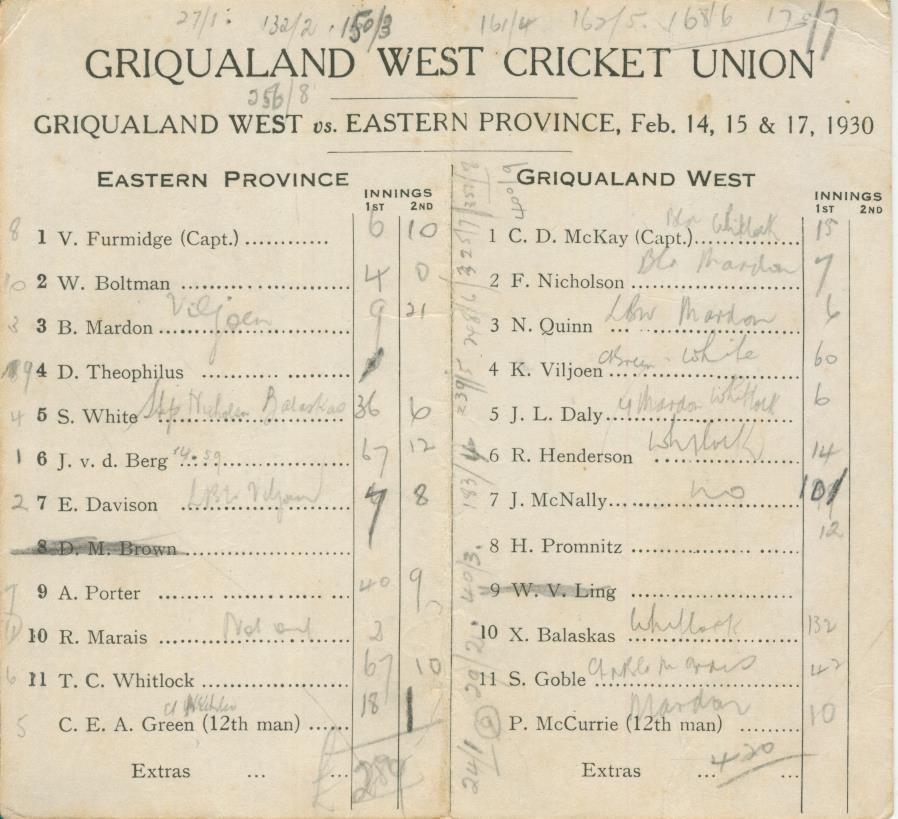 27/1. 132/2. 150/3 161/4 162/5. 168/6
GRIQUALAND WEST CRICKET UNION
256/8
GRIQUALAND WEST vs. EASTERN PROVINCE, Feb. 14, 15 & 17, 1930
EASTERN PROVINCE
INNINGS
1ST 2ND
8 1 V. Furmidge (Capt.) 6 10
10 2 W. Boltman 4 0
3 3 B. Mardon Viljoen 9 21
4 D. Theophilus
4 5 S. White Stp Nicholson Balaskas 36 6
1 6 J. v. d. Berg 67 12
2 7 E. Davison LBW Viljoen 8
8 D. M. Brown
7 9 A. Porter 40 9
10 R. Marais Not out 2
6 11 T. C. Whitlock 67 10
5 C. E. A. Green (12th man) 18 1
Extras ... ...
289
24/1 29/2. 40/3. 183/4 239/5 248/6 325/7
400/9
GRIQUALAND WEST
INNINGS
1ST 2ND
1 C. D. McKay (Capt.) Whitlock 15
2 F. Nicholson Mardon 7
3 N. Quinn LBW Mardon 6
4 K. Viljoen Green White 60
5 J. L. Daly Mardon Whitlock 6
6 R. Henderson Whitlock 14
7 J. McNally no
8 H. Promnitz 12
9 W. V. Ling
10 X. Balaskas Whitlock 132
11 S. Goble 42
P. McCurrie (12th man) Mardon 10
Extras ... 420 ...